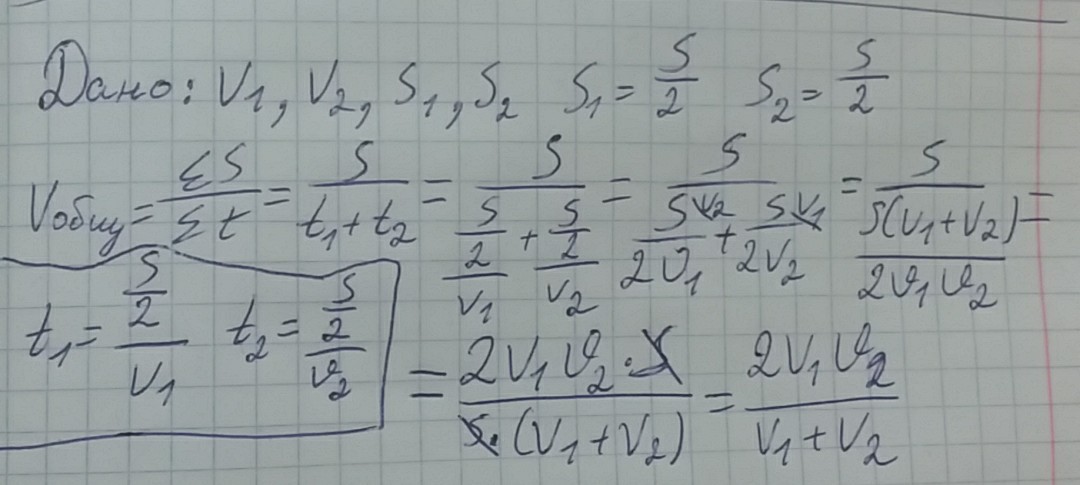 Дано: V₁, V₂, S₁, S₂ S₁ = S/2 S₂ = S/2
Vобщ = ΣS/Σt = S/(t₁+t₂) = S/((S/2)/V₁ + (S/2)/V₂) = S/(SV₂/2υ₁ + SV₁/2V₂) = S/(S(V₁+V₂)/2υ₁υ₂) =
t₁ = (S/2)/V₁ t₂ = (S/2)/υ₂
= 2V₁υ₂·S/(S·(V₁+V₂)) = 2V₁υ₂/(V₁+V₂)